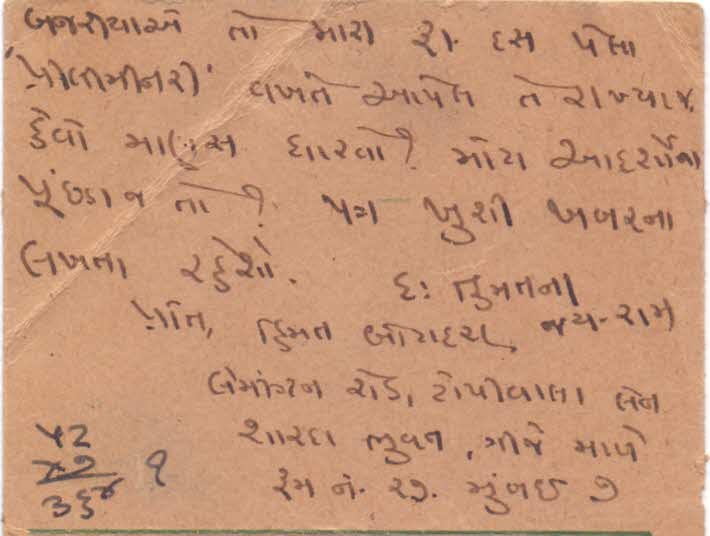 બજરીયાએ તો મારા રૂા. દસ પેલા
'પ્રીલીમીનરી' વખતે આપેલ તે રાખ્યાજ.
કેવો માણસ ધારવો? મોટા આદર્શોના
પૂંછડા ન તો? પત્ર ખુશી ખબરના
લખતા રહેશો. દ: હિંમતના
પ્રતિ, હિંમત બોટાદરા, જય-રામ
લેમીંગ્ટન રોડ, ટોપીવાલા લેન
શારદા ભુવન, ત્રીજે માળે
રૂમ નં. ૨૭. મુંબઇ ૭
૫૨
×૭ ૧
૩૬૪